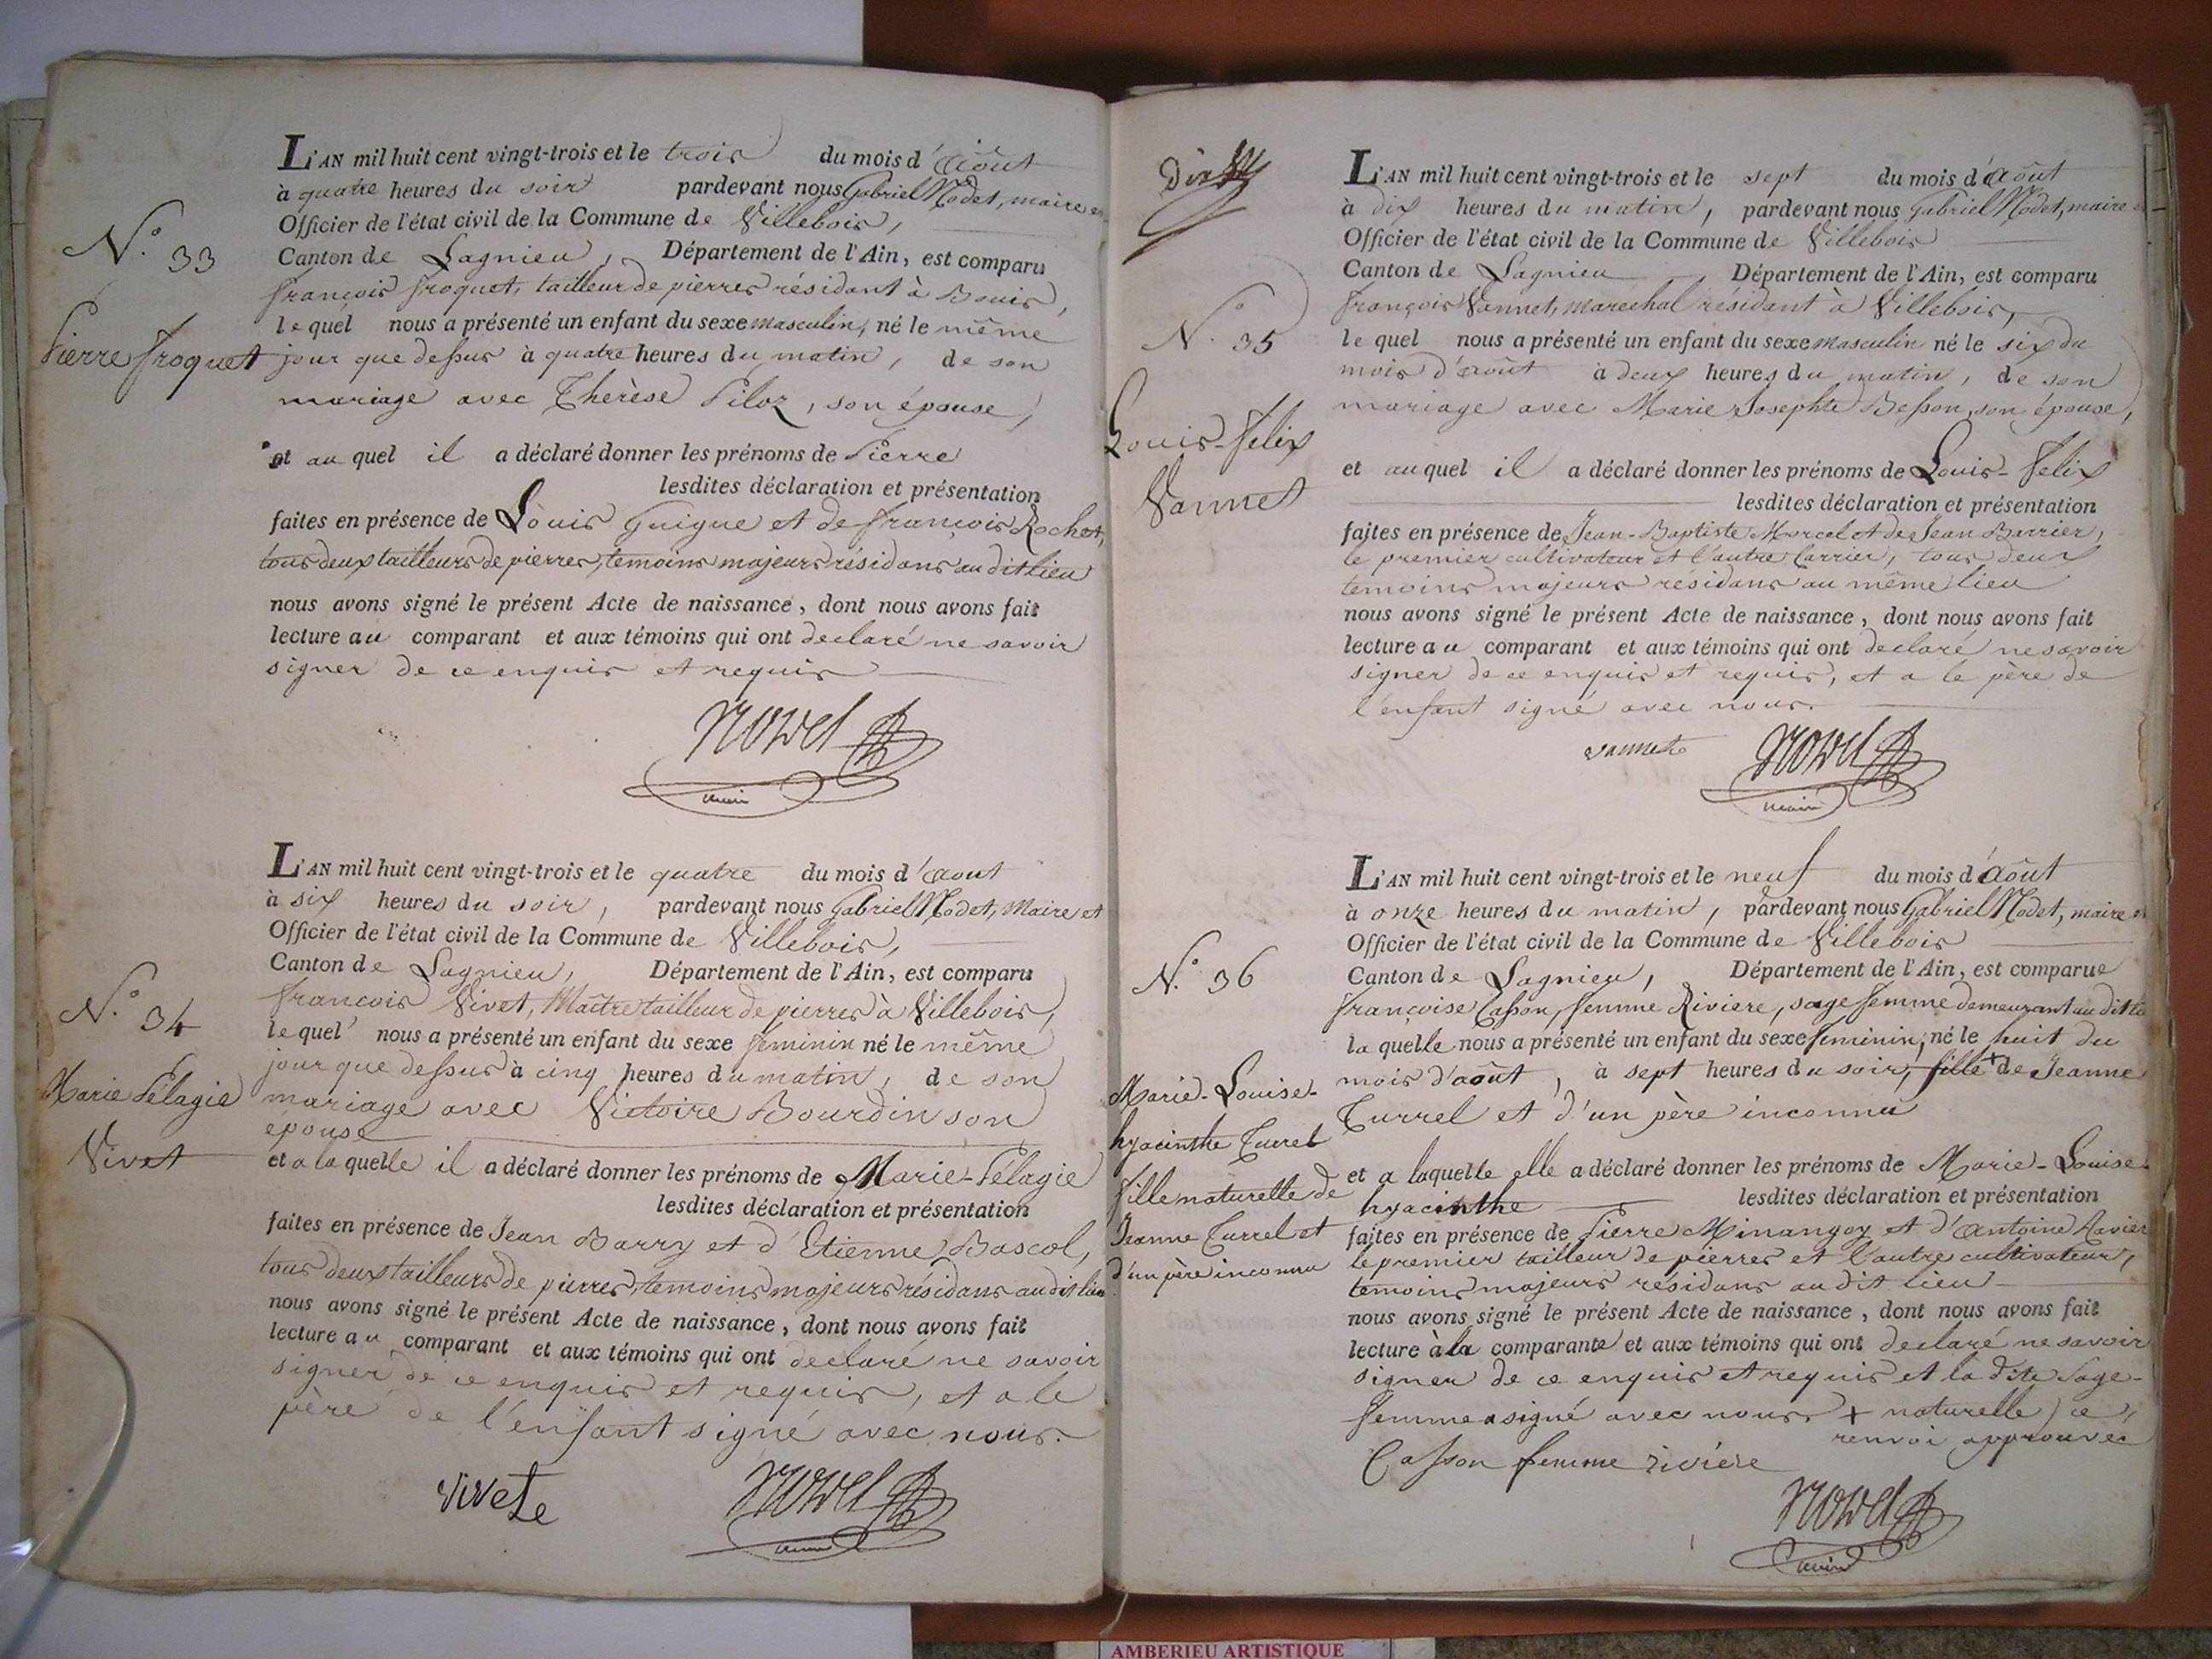 N.o 33
Pierre froquet
L'AN mil huit cent vingt-trois et le trois du mois d'août
à quatre heures du soir pardevant nous Gabriel Nodet, maire et
Officier de l'état civil de la Commune de Villebois,
Canton de Lagnieu, Département de l'Ain, est comparu
françois froquet, tailleur de pierres résidant à Bouis,
le quel nous a présenté un enfant du sexe masculin, né le même
jour que dessus à quatre heures du matin, de son
mariage avec Thérèse Piloz, son épouse,
et au quel il a déclaré donner les prénoms de Pierre
lesdites déclaration et présentation
faites en présence de Louis Guigue et de françois Rochet,
tous deux tailleurs de pierres, temoins majeurs résidans au dit lieu
nous avons signé le présent Acte de naissance, dont nous avons fait
lecture au comparant et aux témoins qui ont declaré ne savoir
signer de ce enquis et requis
Nodet
maire
N.o 34
Marie Pélagie
Vivet
L'AN mil huit cent vingt-trois et le quatre du mois d'aout
à six heures du soir, pardevant nous Gabriel Nodet, Maire et
Officier de l'état civil de la Commune de Villebois,
Canton de Lagnieu, Département de l'Ain, est comparu
françois Vivet, Maître tailleur de pierres à Villebois,
le quel nous a présenté un enfant du sexe feminin né le même
jour que dessus à cinq heures du matin, de son
mariage avec Victoire Bourdin son
epouse
et a la quelle il a déclaré donner les prénoms de Marie-Pélagie
lesdites déclaration et présentation
faites en présence de Jean Barry et d'Etienne Bascol,
tous deux tailleurs de pierres, temoins majeurs résidans au dit lieu
nous avons signé le présent Acte de naissance, dont nous avons fait
lecture au comparant et aux témoins qui ont declaré ne savoir
signer de ce enquis et requis, et a le
père de l'enfant signé avec nous.
Vivet
Nodet
maire
N.o 35
Louis-Felix
Vannet
L'AN mil huit cent vingt-trois et le sept du mois d'août
à dix heures du matin, pardevant nous Gabriel Nodet, maire et
Officier de l'état civil de la Commune de Villebois
Canton de Lagnieu, Département de l'Ain, est comparu
françois Vannet, marechal résidant à Villebois,
le quel nous a présenté un enfant du sexe masculin né le six du
mois d'août à deux heures du matin, de son
mariage avec Marie Josephte Besson, son épouse,
et au quel il a déclaré donner les prénoms de Louis-Felix
lesdites déclaration et présentation
faites en présence de Jean-Baptiste Marcel et de Jean Barrier,
le premier cultivateur et l'autre Carrier, tous deux
temoins majeurs résidans au même lieu
nous avons signé le présent Acte de naissance, dont nous avons fait
lecture au comparant et aux témoins qui ont declaré ne savoir
signer de ce enquis et requis, et a le père de
l'enfant signé avec nous.
vannet
Nodet
maire
N.o 36
Marie-Louise-
hyacinthe Turrel
fille naturelle de
Jeanne Turrel et
d'un père inconnu
L'AN mil huit cent vingt-trois et le neuf du mois d'août
à onze heures du matin, pardevant nous Gabriel Nodet, maire et
Officier de l'état civil de la Commune de Villebois
Canton de Lagnieu, Département de l'Ain, est comparue
françoise Casson, femme Riviere, sage femme demeurant au dit lieu
la quelle nous a présenté un enfant du sexe feminin, né le huit du
mois d'août, à sept heures du soir, fille + de Jeanne
Turrel et d'un père inconnu
et a laquelle elle a déclaré donner les prénoms de Marie-Louise-
hyacinthe lesdites déclaration et présentation
faites en présence de Pierre Minangoy et d'antoine Ravier
le premier tailleur de pierres et l'autre cultivateur,
temoins majeurs résidans au dit lieu
nous avons signé le présent Acte de naissance, dont nous avons fait
lecture à la comparante et aux témoins qui ont declaré ne savoir
signer de ce enquis et requis et la dite Sage-
femme a signé avec nous. + naturelle) ce
renvoi approuvé
Casson femme rivière
Nodet
maire
AMBERIEU ARTISTIQUE